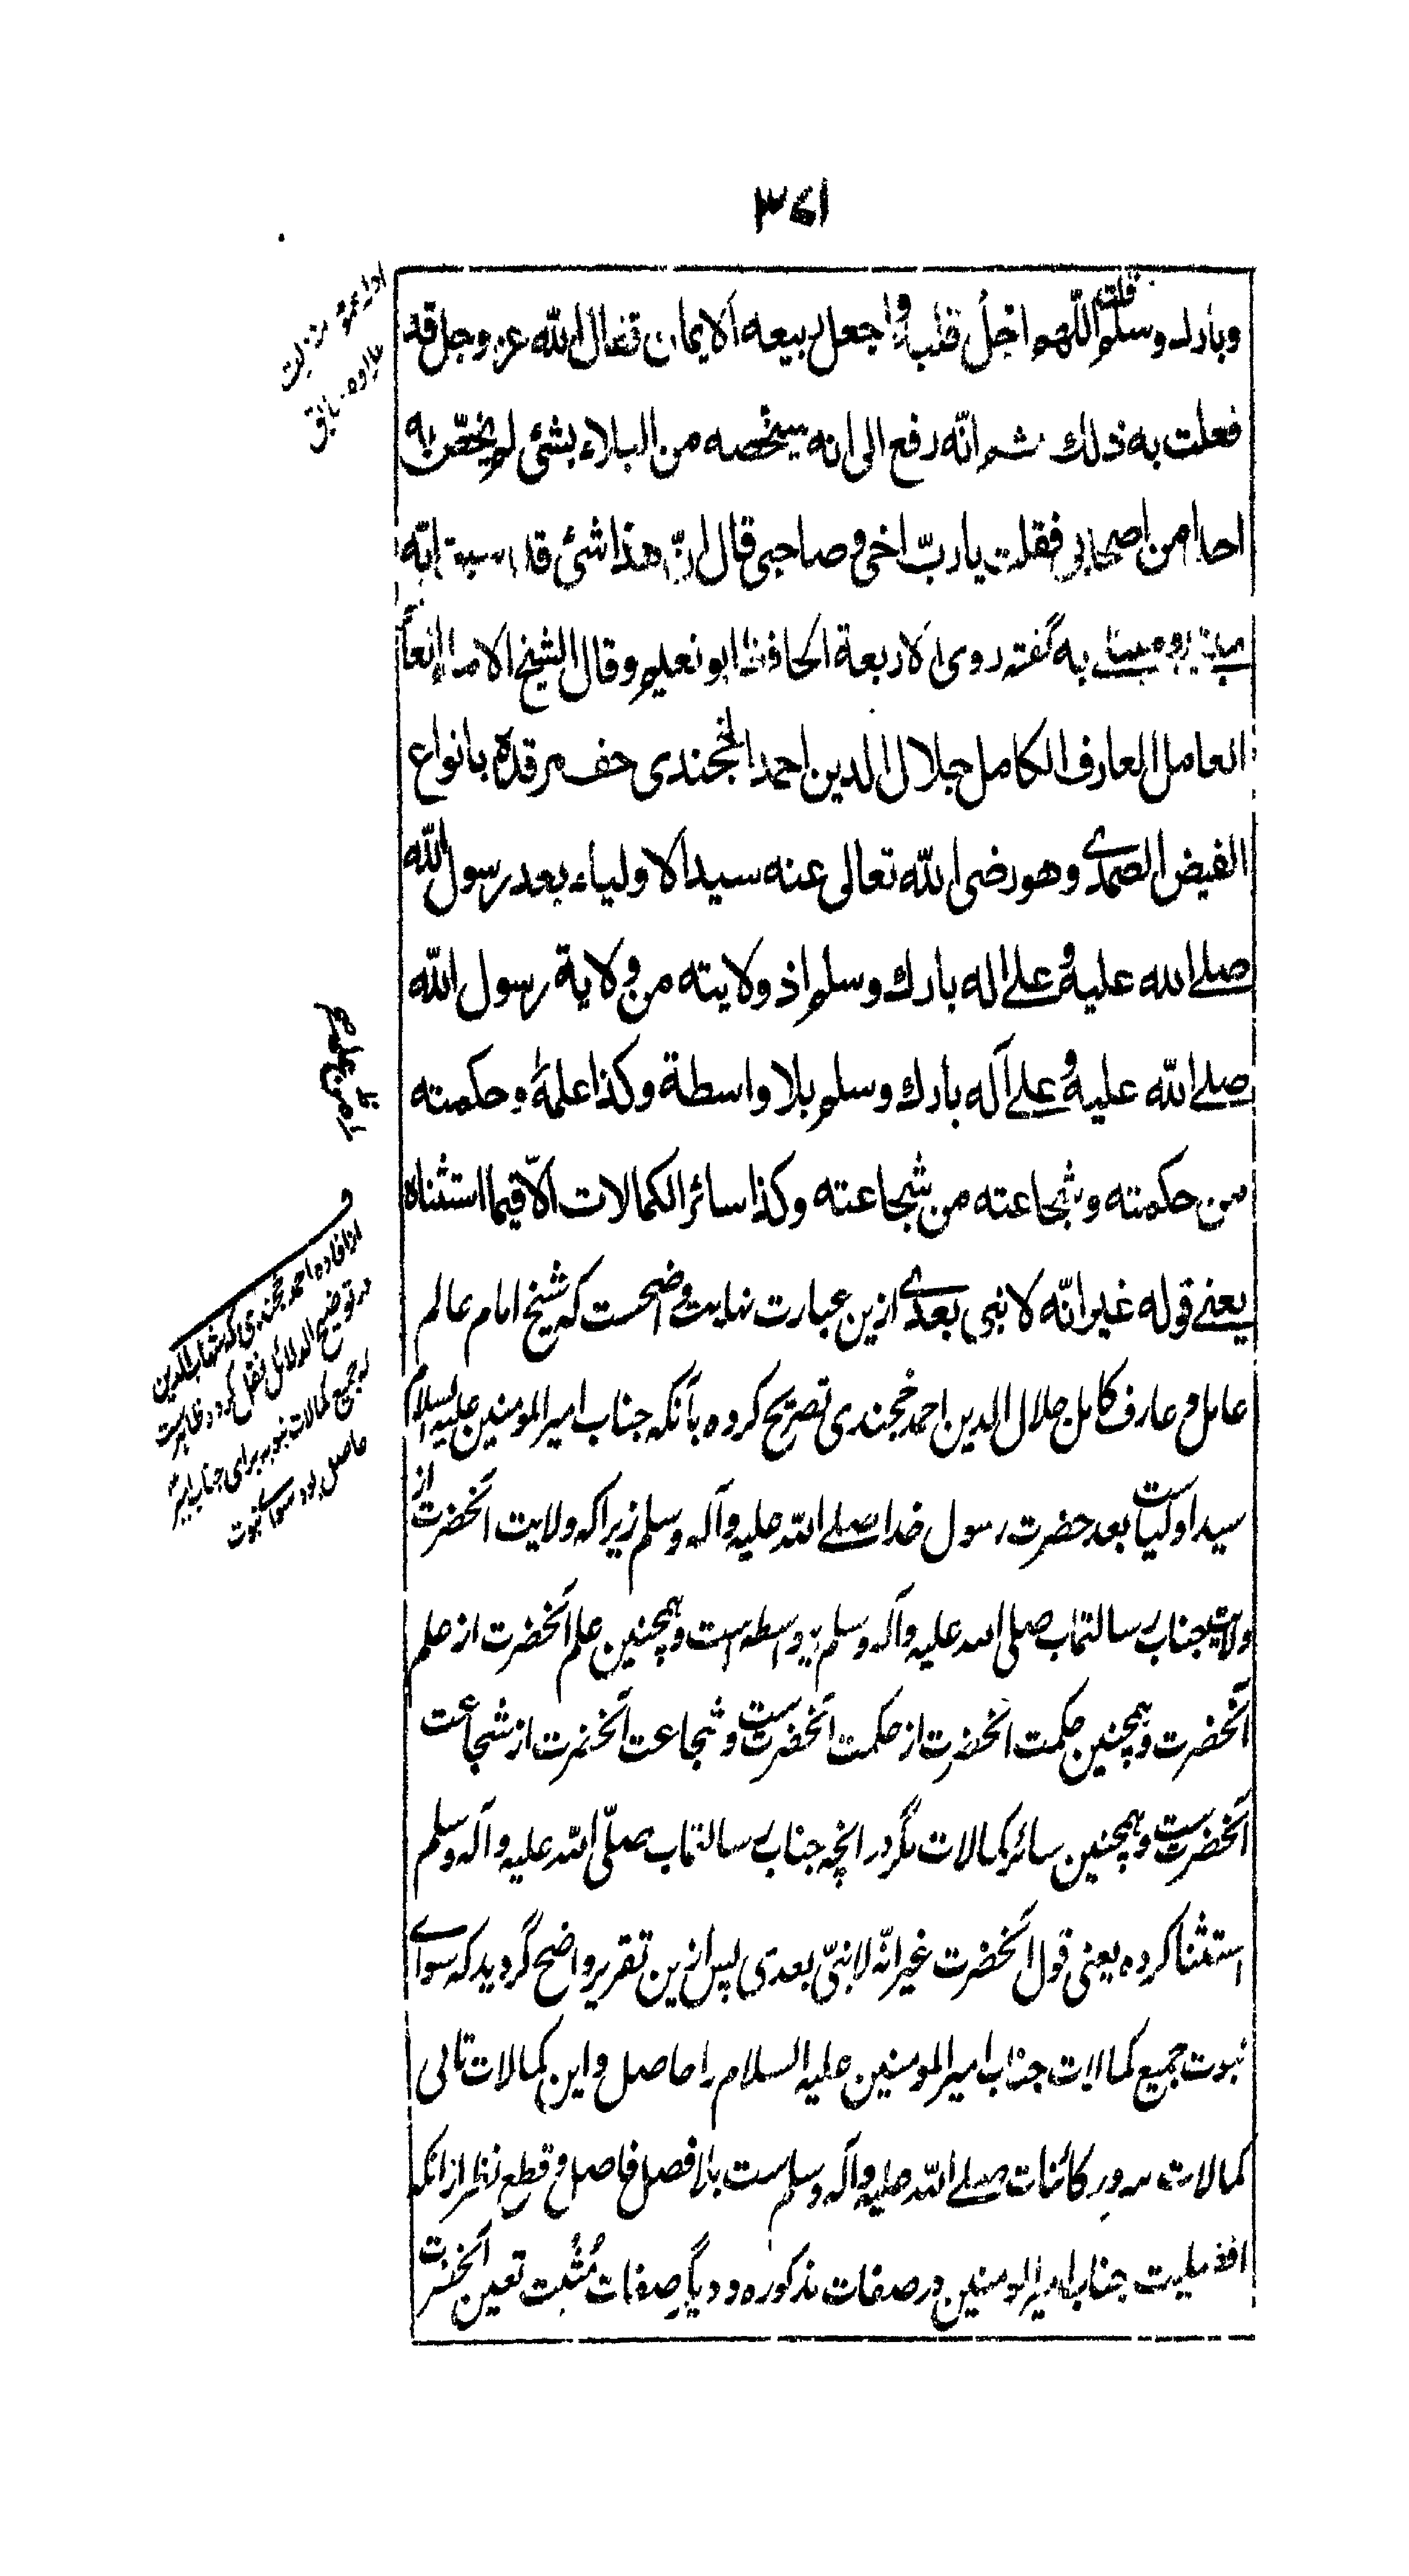 ٣٧١
وبارك وسلم قلت اللهم اجل قلبه واجعل ربيعه الايمان فقال الله عز وجل قد
فعلت به ذلك ثم انّه رفع الى انه سيخصه من البلاء بشئ لم يخصّ به
احدا من اصحابى فقلت يا ربّ اخى وصاحبى قال انّ هذا شئ قد سبق انّه
مبتلى ومبتلى به گفته روى الاربعة الحافظ ابو نعيم وقال الشيخ الامام العالم
العامل العارف الكامل جلال الدين احمد الخجندى حف مرقده بانواع
الفيض الصمدى وهو رضى الله تعالى عنه سيد الاولياء بعد رسول الله
صلى الله عليه وعلى اله بارك وسلم اذ ولايته من ولاية رسول الله
صلى الله عليه وعلى آله بارك وسلم بلا واسطة وكذا علمه وحكمته
من حكمته وشجاعته من شجاعته وكذا سائر الكمالات الاّ فيما استثناه
يعنى قوله غير انّه لا نبى بعدى ازين عبارت نهايت واضحست كه شيخ امام عالم
عامل و عارف كامل جلال الدين احمد خجندى تصريح كرده بآنكه جناب امير المومنين عليه السلام
سيد اولياست بعد حضرت رسول خدا صلى الله عليه وآله وسلم زيراكه ولايت آنحضرت از
ولايت جناب رسالتمآب صلى الله عليه وآله وسلم بيواسطه است وهمچنين علم آنحضرت از علم
آنحضرت وهمچنين حكمت آنحضرت از حكمت آنحضرتست وشجاعت آنحضرت از شجاعت
آنحضرتست وهمچنين سائر كمالات مگر در آنچه جناب رسالتمآب صلّى الله عليه وآله وسلم
استثنا كرده يعنى قول آنحضرت غير انّه لا نبىّ بعدى پس ازين تقرير واضح گرديد كه سواى
نبوت جميع كمالات جناب امير المومنين عليه السلام را حاصل واين كمالات تالى
كمالات سرور كائنات صلى الله عليه وآله وسلم ست بلا فصل فاصل وقطع نظر ازانكه
افضليت جناب امير المومنين در صفات مذكوره و ديگر صفات مُثبت تعين آنحضرت
از افاده احمد خجندى كه شهاب الدين
در توضيح الدلائل نقل كرده ظاهرست
كه جميع كمالات نبويه براى جناب امير
حاصل بود سواى نبوت